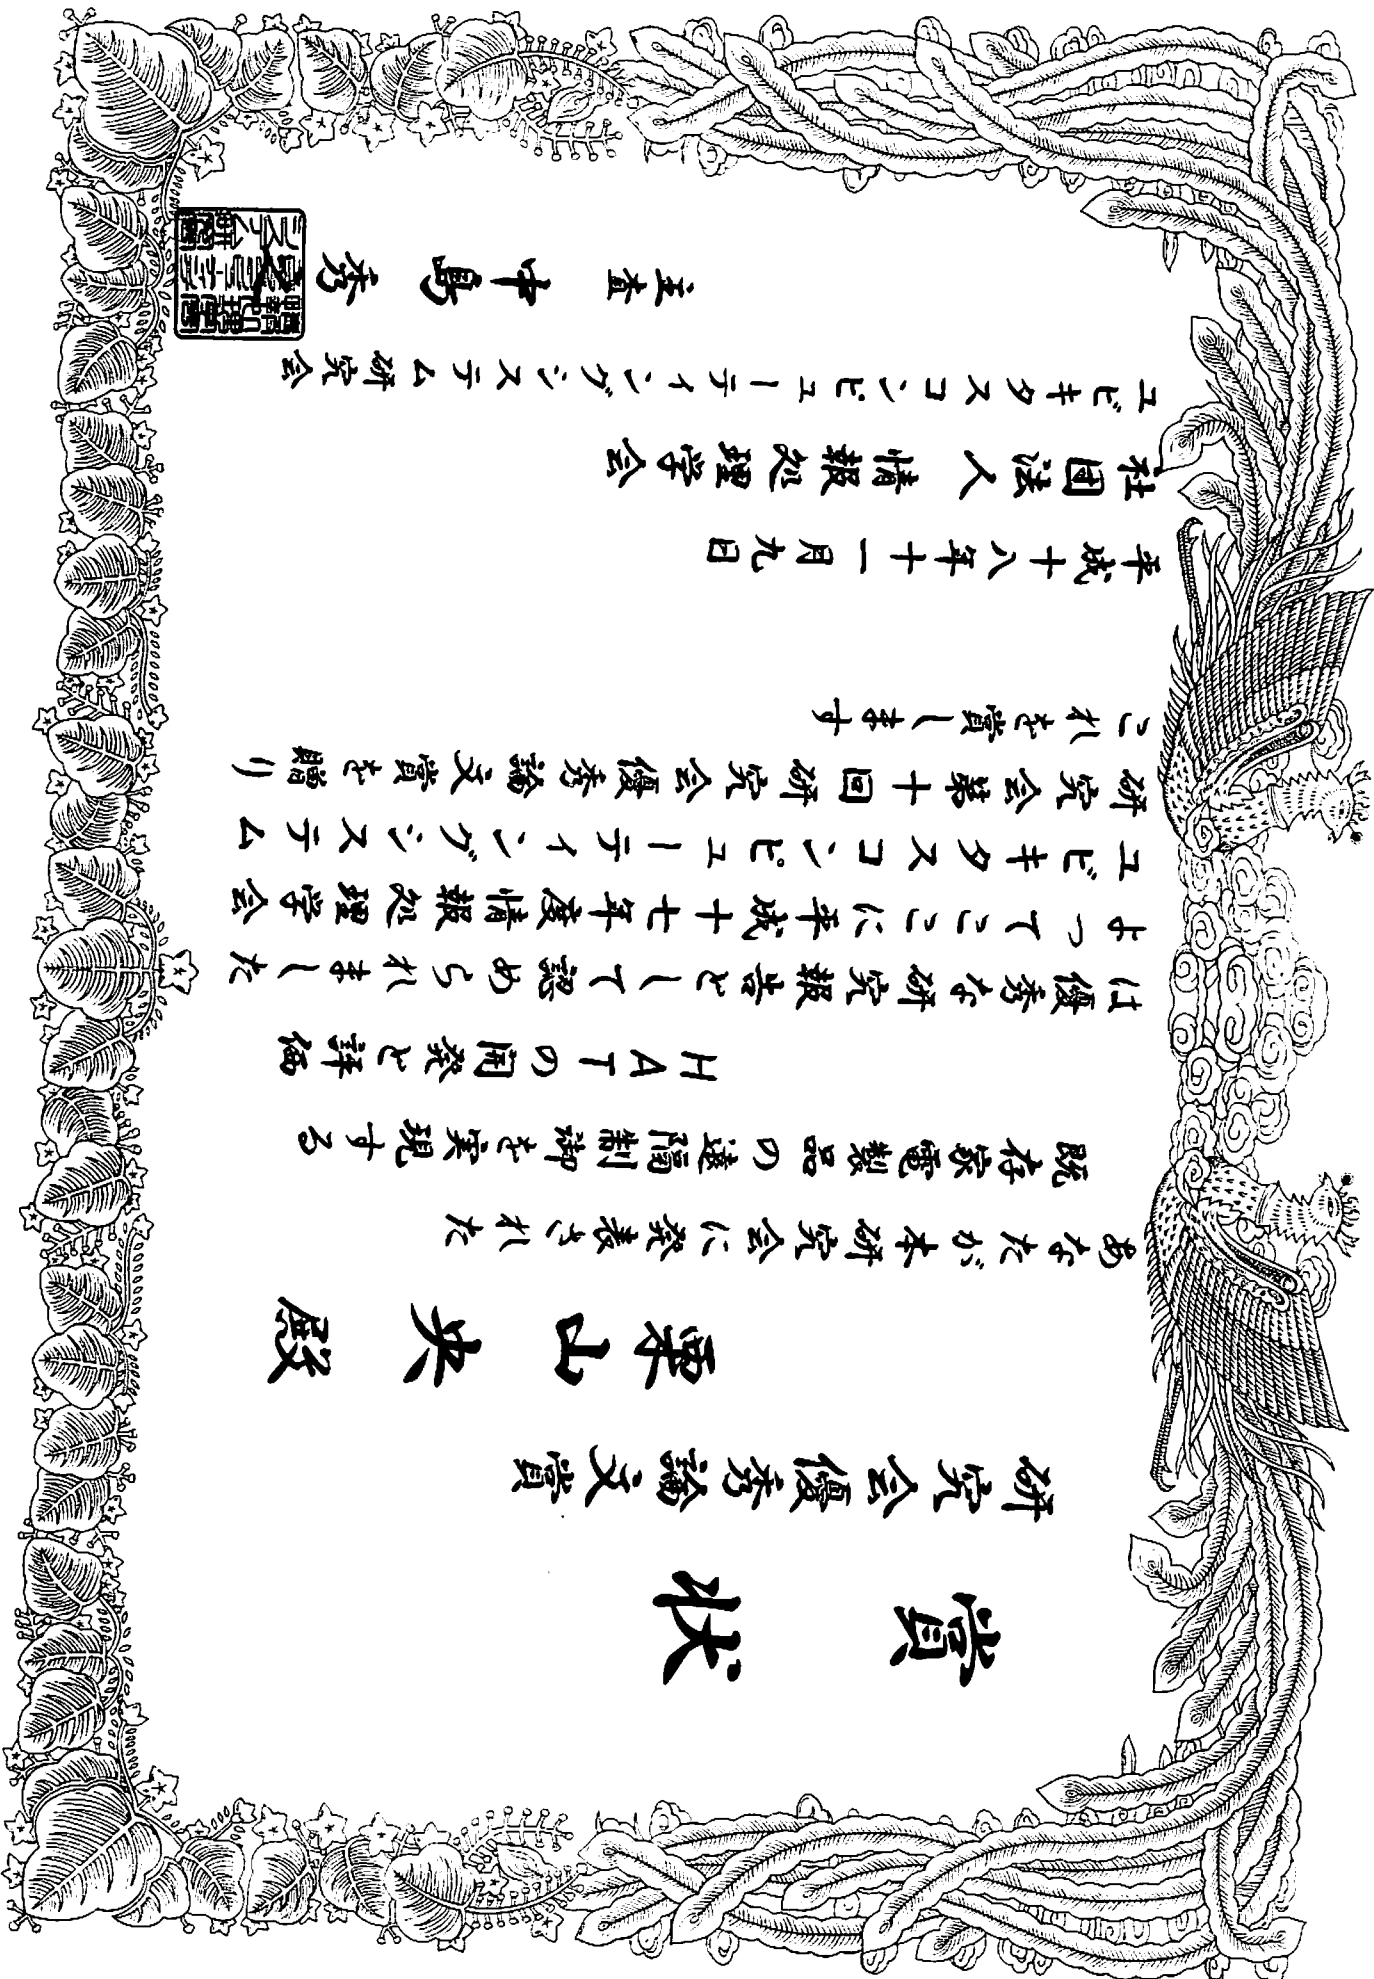 賞状
研究会優秀論文賞
栗山 央 殿
あなたが本研究会に発表された
既存家電製品の遠隔制御を実現する
HATの開発と評価
は優秀な研究報告として認められました
よってここに平成十七年度情報処理学会
ユビキタスコンピューティングシステム
研究会第十回研究会優秀論文賞を贈り
これを賞します
平成十八年十一月九日
社団法人 情報処理学会
ユビキタスコンピューティングシステム研究会
主査 中島 秀